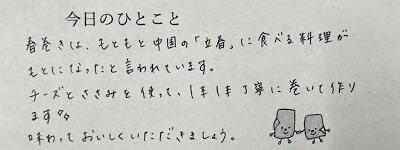 今日のひとこと
春巻きは、もともと中国の「立春」に食べる料理が
もとになったと言われています。
チーズとささみを使って、1本1本丁寧に巻いて作り
ます
味わっておいしくいただきましょう。